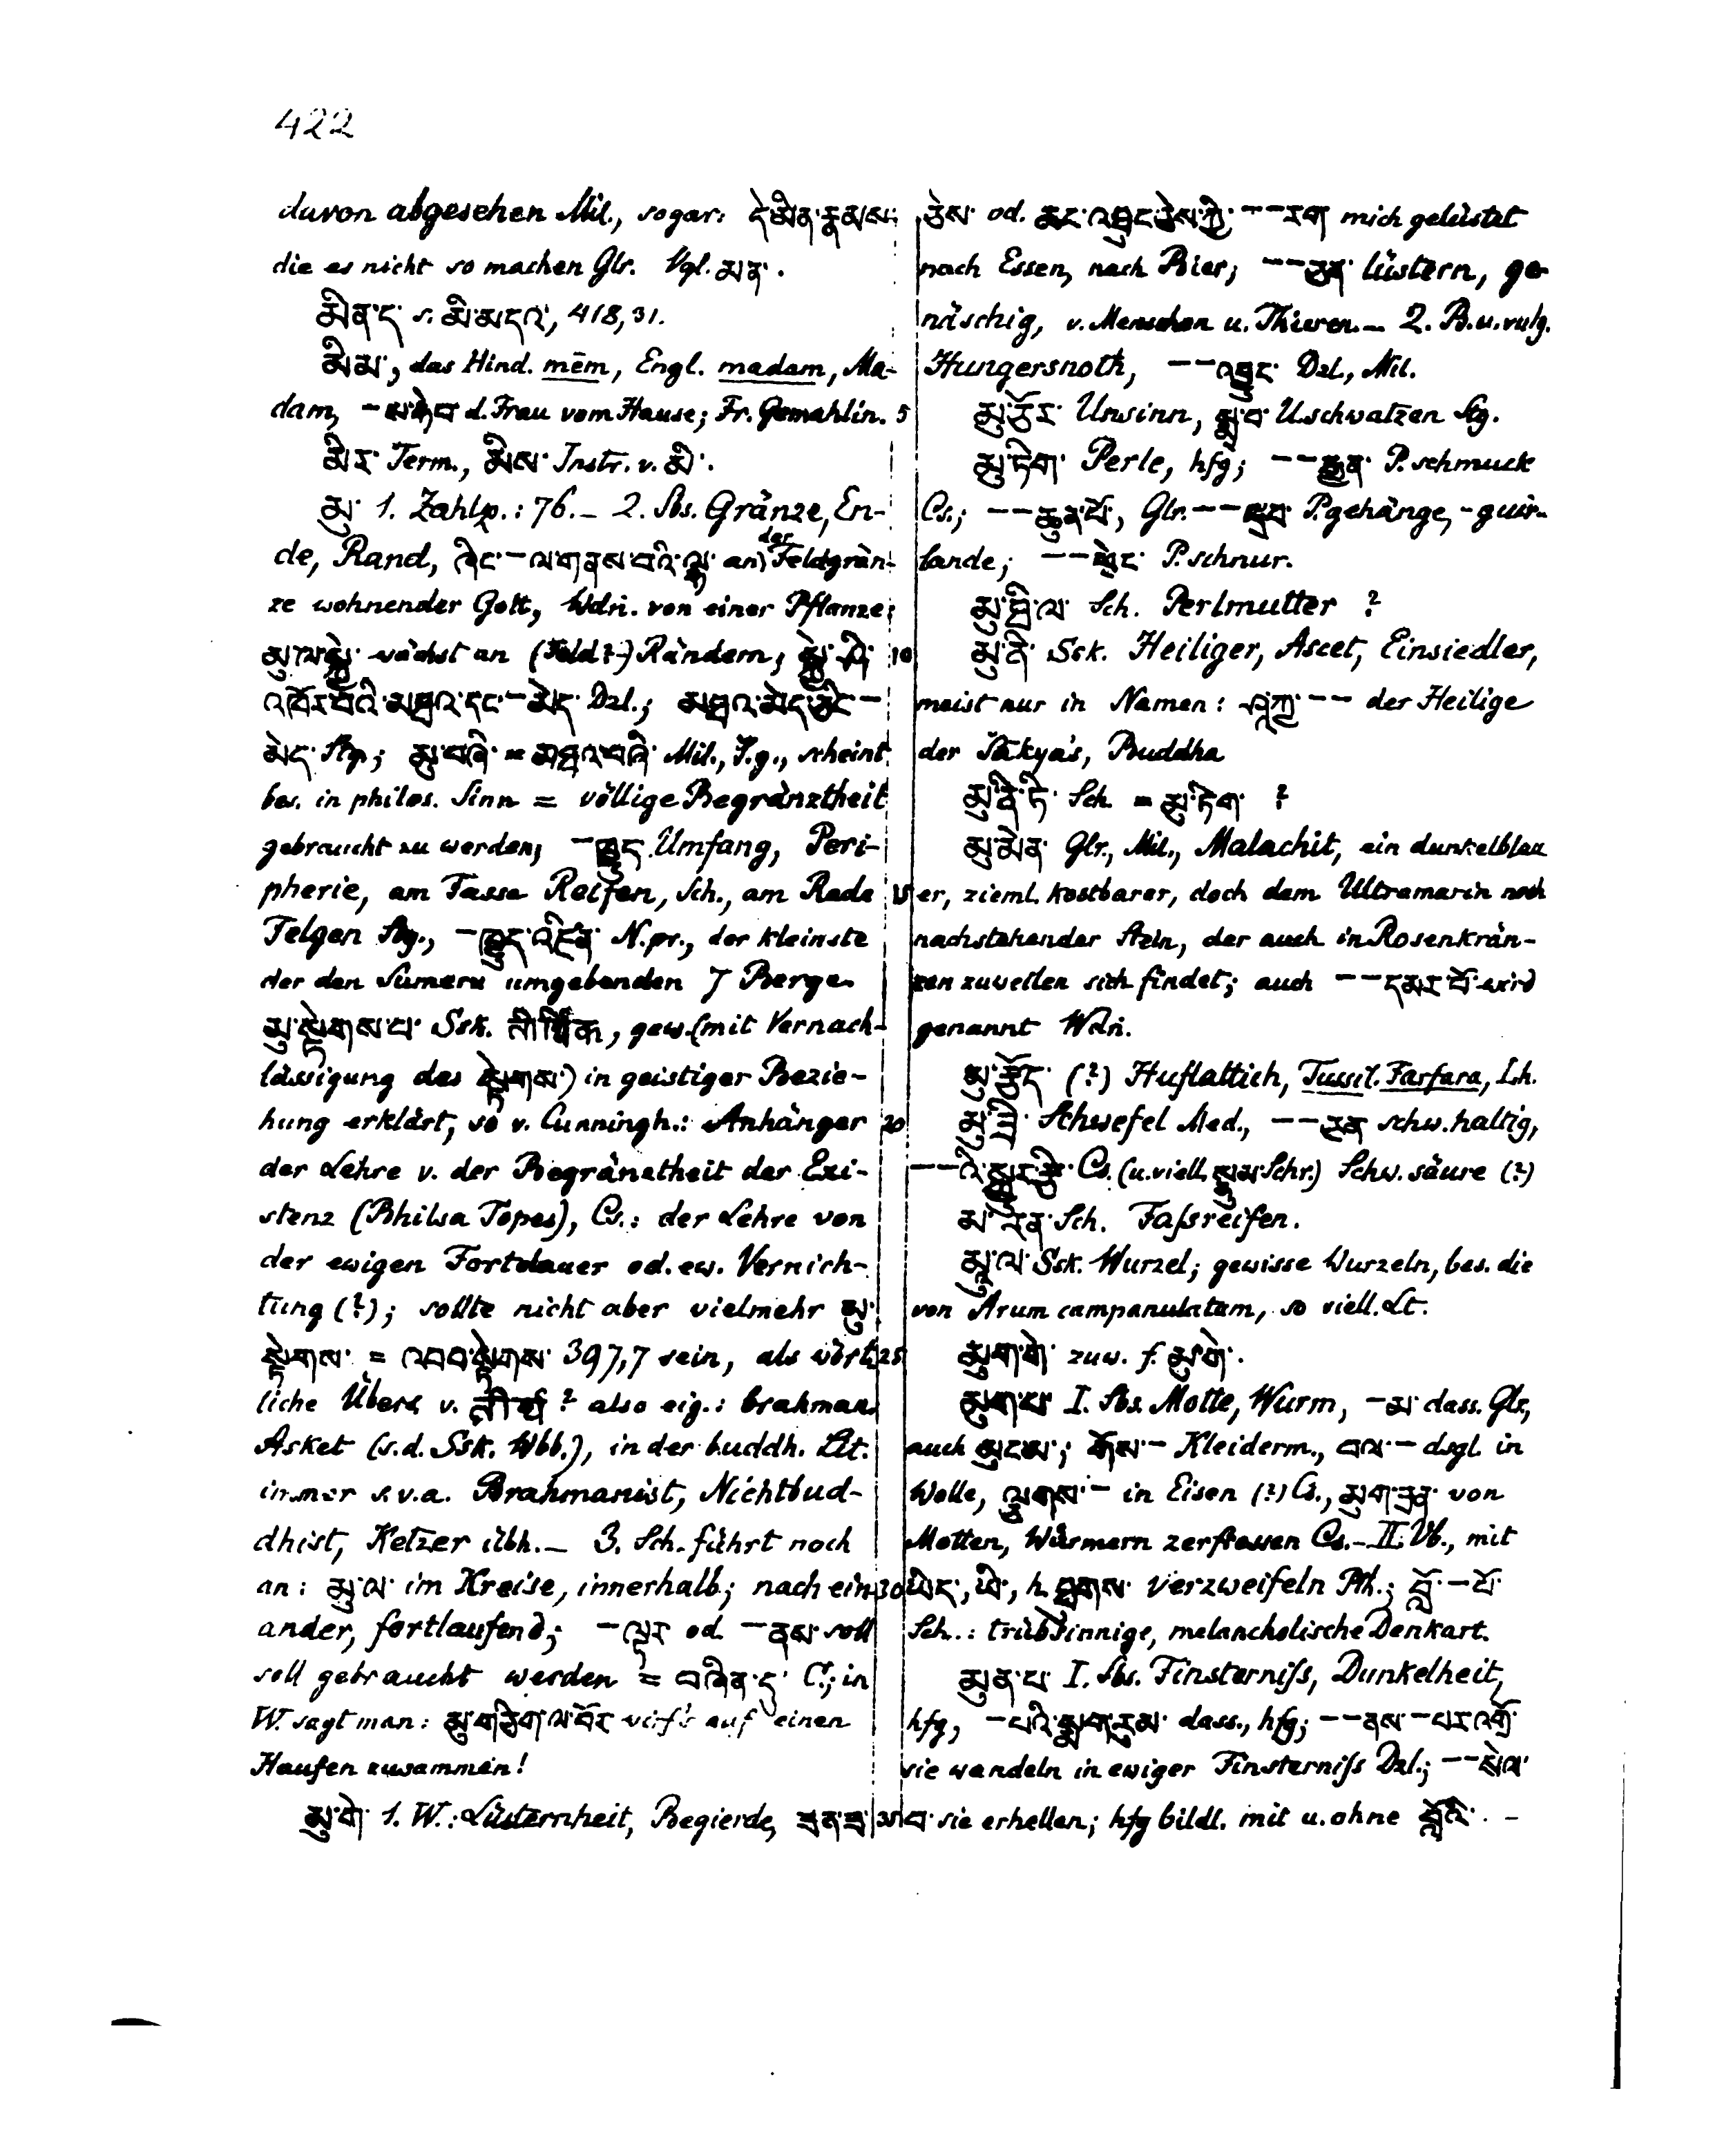 422
davon abgesehen Mil., sogar: དེ་མིན་རྣམས་
die es nicht so machen Glr. Vgl. མན་.
མིན་ད་ s. མི་མདའ་, 418,31.
མིམ་, das Hind. mēm, Engl. madam, Ma-
dam, d. Frau vom Hause; Fr. Gemahlin. 5
མིར་ Term., མིས་ Instr. v. མི་.
མུ་ 1. Zahlp.: 76. _ 2. Sbs. Gränze, En-
de, Rand, ཞིང་ – ལ་གནས་པའི་ལྷ་ an der Feldgrän-
ze wohnender Gott, Wdn. von einer Pflanze:
མུ་ལ་སྐྱེ་ wächst an (Feld?-) Rändern; སྐྱེ་ཤི་ 10
འཁོར་བའི་མཐའ་དང་ – མེད་ Dzl.; མཐའ་མེད་ཅིང་ –
མེད་ Stg.; མུ་བཞི་ = མཐའ་བཞི་ Mil., T.g., scheint
bes. in philos. Sinn = völlige Begränztheit
gebraucht zu werden; – ཁྱུད་ Umfang, Peri-
pherie, am Fasse Reifen, Sch., am Rade 15
Felgen Stg., – ཁྱུད་འཛིན་ N.pr., der kleinste
der den Sumeru umgebenden 7 Berge.
མུ་སྟེགས་པ་ Ssk. तीर्थिक, gew. (mit Vernach-
lässigung des སྟེགས་) in geistiger Bezie-
hung erklärt, so v. Cunningh.: Anhänger 20
der Lehre v. der Begränztheit der Exi-
stenz (Bhilsa Topes), Cs.: der Lehre von
der ewigen Fortdauer od. ew. Vernich-
tung (?); sollte nicht aber vielmehr མུ་
སྟེགས་ = འབབ་སྟེགས་ 397,7 sein, als wörtl 25
liche Übers. v. तीर्थ? also eig.: brahman.
Asket (s.d. Ssk. Wbb.), in der buddh. Lit.
immer s.v.a. Brahmanist, Nichtbud-
dhist, Ketzer übh. _ 3. Sch. führt noch
an: མུ་ལ་ im Kreise, innerhalb; nach ein- 30
ander, fortlaufend; – ལྟར་ od. – ནས་ soll
soll gebraucht werden = བཞིན་དུ་ C.; in
W. sagt man: མུ་གཅིག་ལ་བོར་ wirf's auf einen
Haufen zusammen!
མུ་གེ་ 1. W.: Lüsternheit, Begierde, ཟན་ཟ་
ཅེས་ od. ཆང་འཐུང་ཅེས་ཀྱི་ – – རག་ mich gelüstet
nach Essen, nach Bier; – – ཅན་ lüstern, ge-
näschig, v. Menschen u. Thieren. _ 2. B. u. vulg.
Hungersnoth, – – འབྱུང་ Dzl., Mil.
མུ་ཅོར་ Unsinn, སྨྲ་བ་ U. schwatzen Stg.
མུ་ཏིག་ Perle, hfg; – – རྒྱན་ P. schmuck
Cs.; – – ཆུན་པོ་, Glr. – – དྲ་བ་ P. gehänge, - guir-
lande; – – ཕྲེང་ P. schnur.
མུ་ཁྲི་ལ་ Sch. Perlmutter ?
མུ་ནི་ Ssk. Heiliger, Ascet, Einsiedler,
meist nur in Namen: ཤཱཀྱ་ – – der Heilige
der Šākya's, Buddha
མུ་ནི་ཏི་ Sch. = མུ་ཏིག་ ?
མུ་མེན་ Glr., Mil., Malachit, ein dunkelblau
er, zieml. kostbarer, doch dem Ultramarin noch
nachstehender Stein, der auch in Rosenkrän-
zen zuweilen sich findet; auch – – དམར་པོ་ wird
genannt Wdn.
(?) Huflattich, Tussil. Farfara, Lh.
མུ་ཟི་ Schwefel Med., – – ཅན་ schw. haltig,
– – འི་སྐྱུར་རྩི་ Cs. (u. viell. སྐྱུམ་ Schr.) Schw. säure (?)
མུ་རན་ Sch. Faßreifen.
མུ་ལ་ Ssk. Wurzel; gewisse Wurzeln, bes. die
von Arum campanulatum, so viell. Lt.
མུག་གེ་ zuw. f. མུ་གེ་.
མུག་པ་ I. Sbs. Motte, Wurm, – མ་ dass. Glr.,
auch མུང་མ་; གོས་ – Kleiderm., བལ་ – dsgl. in
Wolle, ལྕགས་ – in Eisen (?) Cs., མུག་ཟན་ von
Motten, Würmern zerfressen Cs. _ II. Vb., mit
ཡིད་, ཡི་, h. ཐུགས་ verzweifeln Pth.; བློ་ – པོ་
Sch.: trübsinnige, melancholische Denkart.
མུན་པ་ I. Sbs. Finsterniß, Dunkelheit,
hfg, – པའི་སྨག་རུམ་ dass., hfg; – – ནས་ – པར་འགྲོ་
sie wandeln in ewiger Finsterniß Dzl.; – – སེལ་
བ་ sie erhellen; hfg bildl. mit u. ohne བློའི་. –